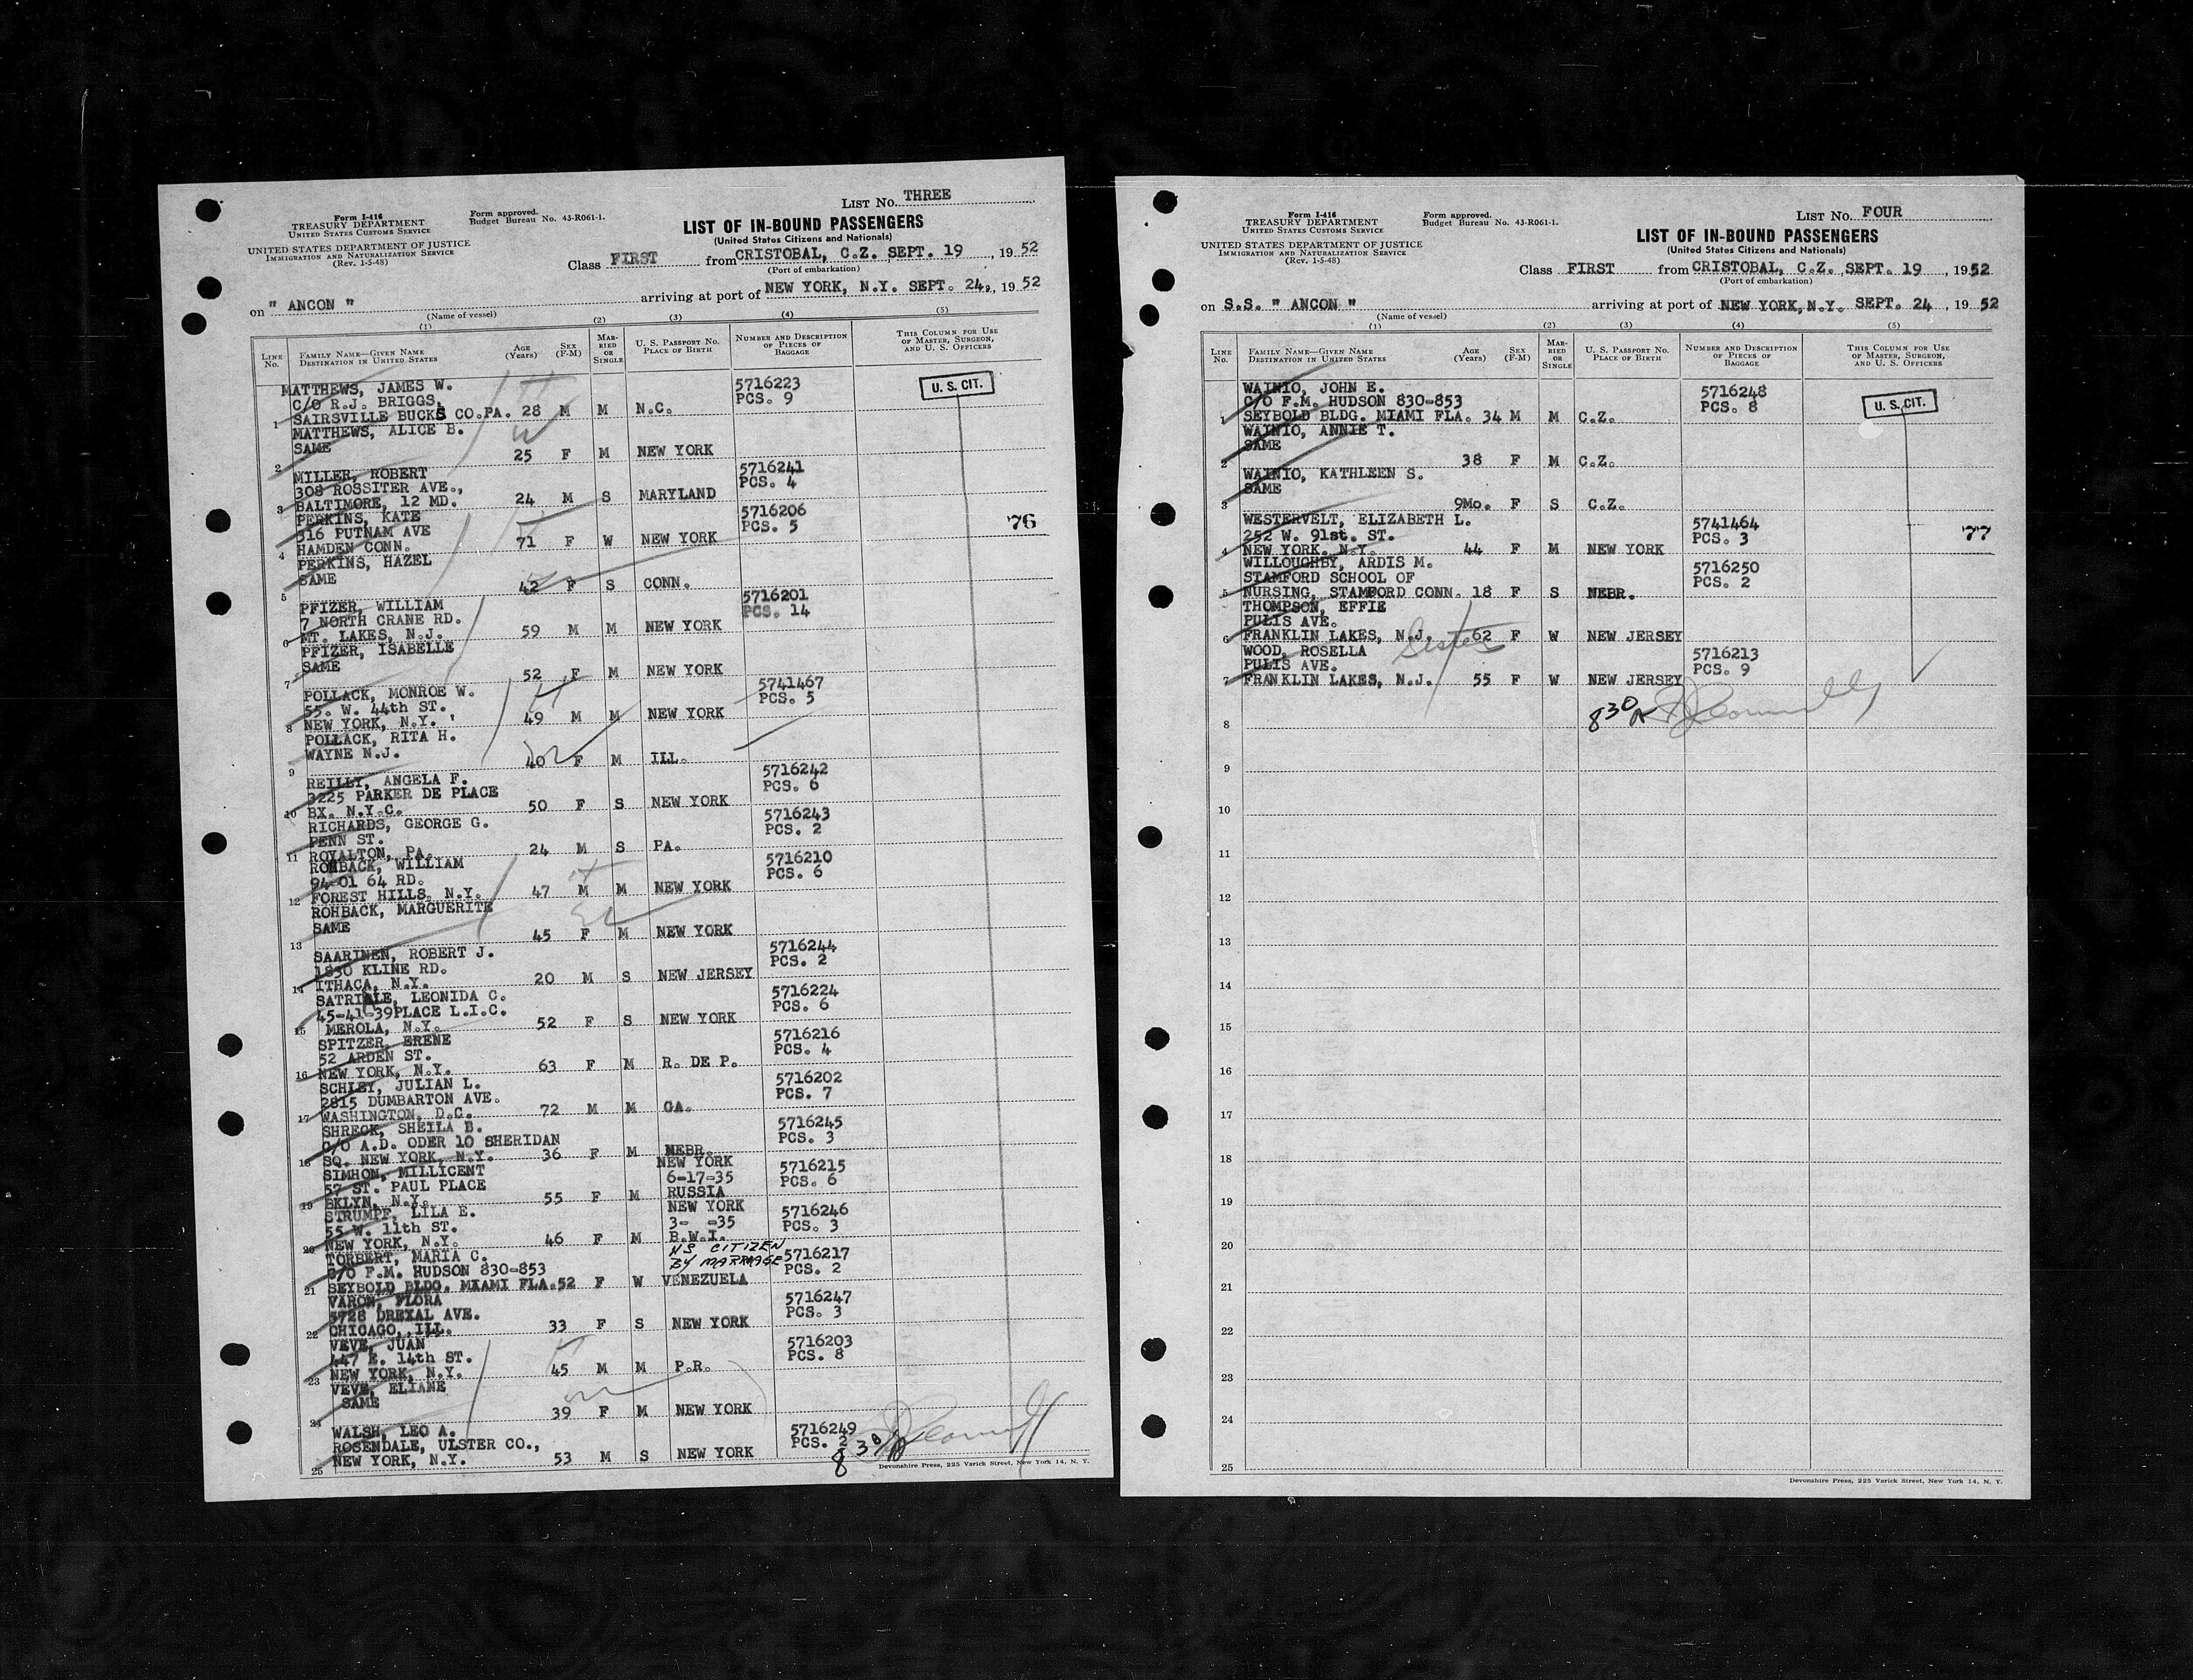 Form I-416
TREASURY DEPARTMENT
UNITED STATES CUSTOMS SERVICE
UNITED STATES DEPARTMENT OF JUSTICE
IMMIGRATION AND NATURALIZATION SERVICE
(Rev. 1-5-48)
Form approved.
Budget Bureau No. 43-R061-1.
LIST No. THREE
LIST OF IN-BOUND PASSENGERS
(United States Citizens and Nationals)
Class FIRST from CRISTOBAL, C.Z. SEPT. 19, 1952
(Port of embarkation)
on " ANCON " arriving at port of NEW YORK, N.Y. SEPT. 24., 1952
(Name of vessel)
(1) (2) (3) (4) (5)
LINE No. FAMILY NAME—GIVEN NAME DESTINATION IN UNITED STATES AGE (Years) SEX (F-M) MARRIED OR SINGLE U. S. PASSPORT No. PLACE OF BIRTH NUMBER AND DESCRIPTION OF PIECES OF BAGGAGE THIS COLUMN FOR USE OF MASTER, SURGEON, AND U. S. OFFICERS
MATTHEWS, JAMES W. 5716223 U. S. CIT.
C/O R.J. BRIGGS, PCS. 9
1 SAIRSVILLE BUCKS CO.PA. 28 M M N.C.
MATTHEWS, ALICE B.
SAME
2 25 F M NEW YORK
MILLER, ROBERT 5716241
308 ROSSITER AVE., PCS. 4
3 BALTIMORE, 12 MD. 24 M S MARYLAND
PERKINS, KATE 5716206
316 PUTNAM AVE PCS. 5 76
4 HAMDEN CONN. 71 F W NEW YORK
PERKINS, HAZEL
SAME
5 42 F S CONN.
PFIZER, WILLIAM 5716201
7 NORTH CRANE RD. PCS. 14
6 MT. LAKES, N.J. 59 M M NEW YORK
PFIZER, ISABELLE
SAME
7 52 F M NEW YORK
POLLACK, MONROE W. 5741467
55. W. 44th ST. PCS. 5
8 NEW YORK, N.Y. 49 M M NEW YORK
POLLACK, RITA H.
WAYNE N.J.
9 40 F M ILL.
REILLY, ANGELA F. 5716242
3225 PARKER DE PLACE PCS. 6
10 BX. N.Y.C. 50 F S NEW YORK
RICHARDS, GEORGE G. 5716243
PENN ST. PCS. 2
11 ROYALTON, PA. 24 M S PA.
ROHBACK, WILLIAM 5716210
94-01 64 RD. PCS. 6
12 FOREST HILLS, N.Y. 47 M M NEW YORK
ROHBACK, MARGUERITE
SAME
13 45 F M NEW YORK
SAARINEN, ROBERT J. 5716244
1830 KLINE RD. PCS. 2
14 ITHACA, N.Y. 20 M S NEW JERSEY
SATRIALE, LEONIDA C. 5716224
45-41-39PLACE L.I.C. PCS. 6
15 MEROLA, N.Y. 52 F S NEW YORK
SPITZER, ERENE 5716216
52 ARDEN ST. PCS. 4
16 NEW YORK, N.Y. 63 F M R. DE P.
SCHLEY, JULIAN L. 5716202
2815 DUMBARTON AVE. PCS. 7
17 WASHINGTON, D.C. 72 M M GA.
SHRECK, SHEILA B. 5716245
C/O A.D. ODER 10 SHERIDAN PCS. 3
18 SQ. NEW YORK, N.Y. 36 F M NEBR.
SIMHON, MILLICENT NEW YORK 5716215
57 ST. PAUL PLACE 6-17-35 PCS. 6
19 BKLYN, N.Y. 55 F M RUSSIA
STRUMPF, LILA E. NEW YORK 5716246
55 W. 11th ST. 3- -35 PCS. 3
20 NEW YORK, N.Y. 46 F M B.W.I.
TORBERT, MARIA C. US CITIZEN 5716217
C/O F.M. HUDSON 830-853 BY MARRIAGE PCS. 2
21 SEYBOLD BLDG. MIAMI FLA. 52 F W VENEZUELA
VARON, FLORA 5716247
5728 DREXAL AVE. PCS. 3
22 CHICAGO, ILL. 33 F S NEW YORK
VEVE, JUAN 5716203
447 E. 14th ST. PCS. 8
23 NEW YORK, N.Y. 45 M M P.R.
VEVE, ELIANE
SAME
24 39 F M NEW YORK
WALSH, LEO A. 5716249
ROSENDALE, ULSTER CO., PCS. 2
25 NEW YORK, N.Y. 53 M S NEW YORK 830
Devonshire Press, 225 Varick Street, New York 14, N. Y.
Form I-416
TREASURY DEPARTMENT
UNITED STATES CUSTOMS SERVICE
UNITED STATES DEPARTMENT OF JUSTICE
IMMIGRATION AND NATURALIZATION SERVICE
(Rev. 1-5-48)
Form approved.
Budget Bureau No. 43-R061-1.
LIST No. FOUR
LIST OF IN-BOUND PASSENGERS
(United States Citizens and Nationals)
Class FIRST from CRISTOBAL, C.Z., SEPT. 19, 1952
(Port of embarkation)
on S.S. " ANCON " arriving at port of NEW YORK, N.Y. SEPT. 24, 1952
(Name of vessel)
(1) (2) (3) (4) (5)
LINE No. FAMILY NAME—GIVEN NAME DESTINATION IN UNITED STATES AGE (Years) SEX (F-M) MARRIED OR SINGLE U. S. PASSPORT No. PLACE OF BIRTH NUMBER AND DESCRIPTION OF PIECES OF BAGGAGE THIS COLUMN FOR USE OF MASTER, SURGEON, AND U. S. OFFICERS
WAINIO, JOHN E. 5716248
C/O F.M. HUDSON 830-853 PCS. 8 U. S. CIT.
1 SEYBOLD BLDG. MIAMI FLA. 34 M M C.Z.
WAINIO, ANNIE T.
SAME
2 38 F M C.Z.
WAINIO, KATHLEEN S.
SAME
3 9Mo. F S C.Z.
WESTERVELT, ELIZABETH L. 5741464
252 W. 91st. ST. PCS. 3 77
4 NEW YORK. N.Y. 44 F M NEW YORK
WILLOUGHBY, ARDIS M. 5716250
STAMFORD SCHOOL OF PCS. 2
5 NURSING, STAMFORD CONN. 18 F S NEBR.
THOMPSON, EFFIE
PULIS AVE.
6 FRANKLIN LAKES, N.J. 62 F W NEW JERSEY
Sisters
WOOD, ROSELLA 5716213
PULIS AVE. PCS. 9
7 FRANKLIN LAKES, N.J. 55 F W NEW JERSEY
8 830 A
9
10
11
12
13
14
15
16
17
18
19
20
21
22
23
24
25
Devonshire Press, 225 Varick Street, New York 14, N. Y.